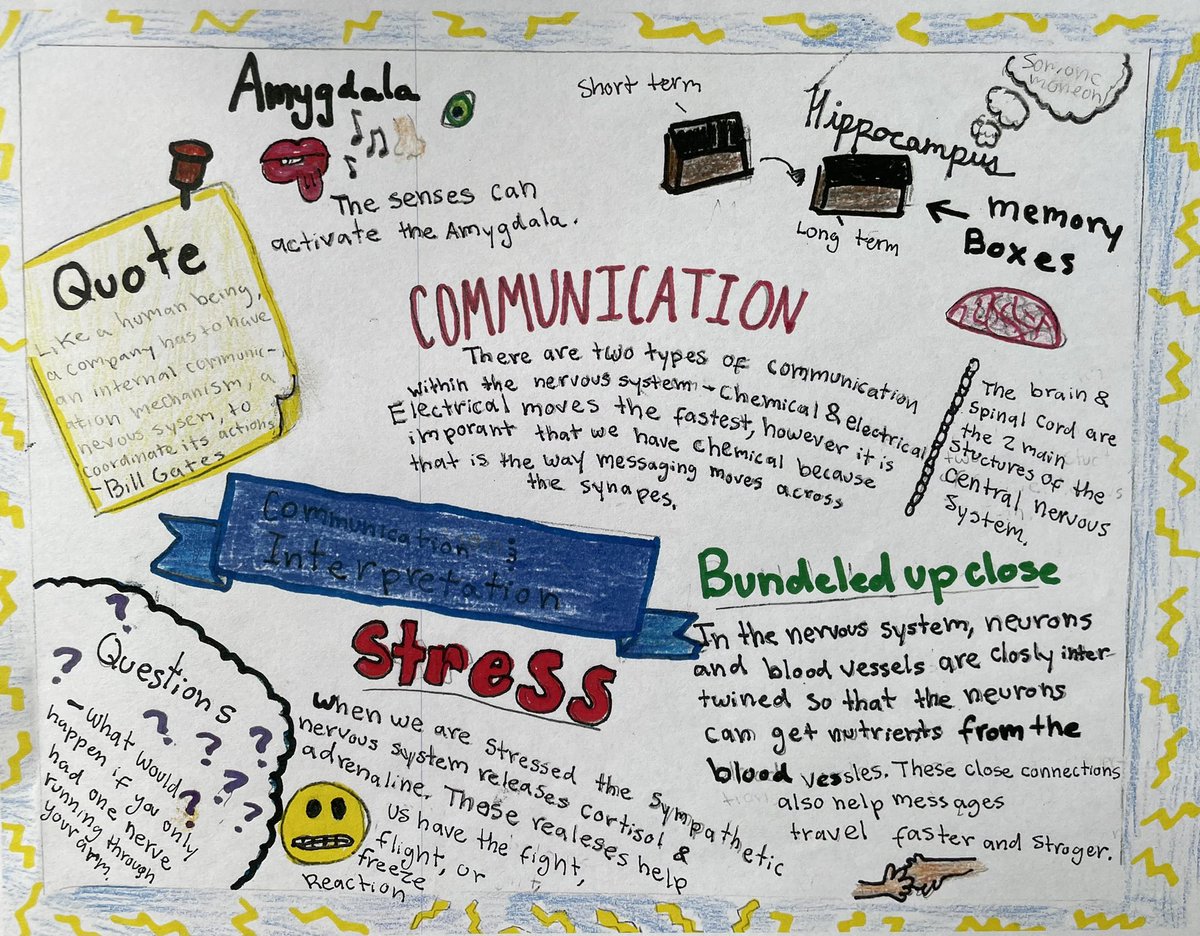 Amygdala
The senses can
activate the Amygdala.
Short term
Hippocampus
Long term
Memory
Boxes
Quote
Like a human being,
a company has to have
an internal communic-
ation mechanism, a
nervous sysem, to
coordinate its actions
-Bill Gates
COMMUNICATION
There are two types of communication
within the nervous system - Chemical & electrical
Electrical moves the fastest, however it is
imporant that we have chemical because
that is the way messaging moves across
the synapes.
The brain &
spinal cord are
the 2 main
stuctures of the
central nervous
system.
Communication &
Interpretation
Bundeled up close
In the nervous system, neurons
and blood vessels are closly inter-
twined so that the neurons
can get nutrients from the
blood vessles. These close connections
also help messages
travel faster and stroger.
Stress
When we are stressed the sympathetic
nervous system releases cortisol &
adrenaline. These realeses help
us have the fight,
flight, or
freeze
Reaction
Questions
- What would
happen if you only
had one nerve
running through
your arm.